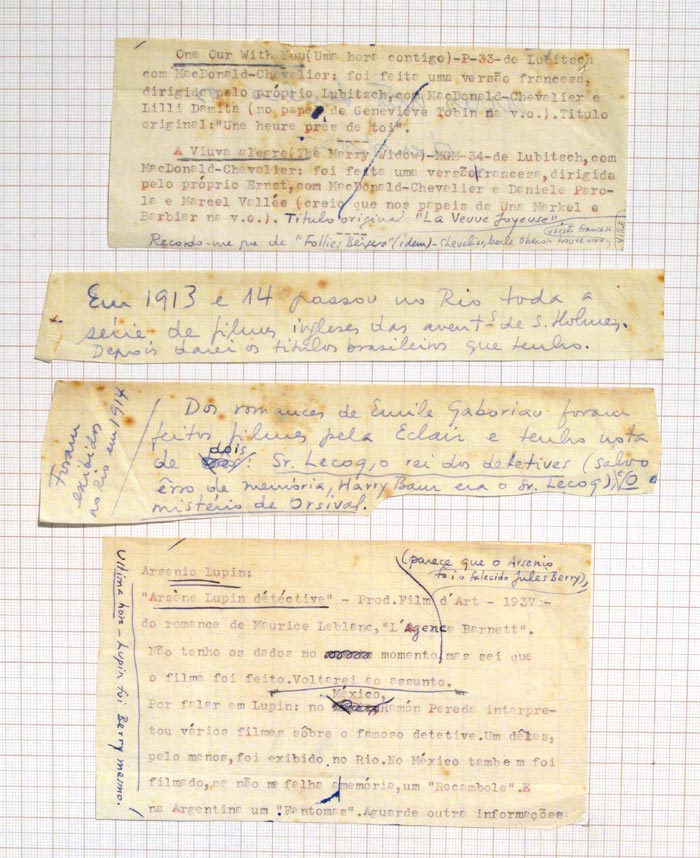 One Our With You(Uma hora contigo)-P-33-de Lubitsch
com MacDonald-Chevalier: foi feita uma versão francesa,
dirigida pelo próprio Lubitsch,com MacDonald-Chevalier e
Lilli Damita (no papel de Genevieve Tobin na v.o.).Titulo
original:"Une heure près de toi".
A Viuva alegre(The Merry Widow)-MGM-34-de Lubitsch,com
MacDonald-Chevalier: foi feita uma versão francesa,dirigida
pelo próprio Ernst,com MacDonald-Chevalier e Daniele Paro-
la e Marcel Vallée (creio que nos papeis de Una Merkel e
Barbier na v.o.). Titulo original "La Veuve Joyeuse"
(versão francesa)
Recordo-me que de "Follies Bergere" (idem) - Chevalier, Merle Oberon
VIRE
Em 1913 e 14 passou no Rio toda a
série de filmes ingleses das avent.s de S. Holmes.
Depois darei os titulos brasileiros que tenho.
Foram
exibidos
no Rio em 1914
Dos romances de Emile Gaboriau foram
feitos filmes pela Eclair e tenho nota
de dois: Sr. Lecoq, o rei dos detetives (salvo
êrro de memória, Harry Baur era o Sr. Lecoq), e O
mistério de Orsival.
(parece que o Arsenio
foi o falecido Jules Berry),
Arsenio Lupin:
"Arsène Lupin détéctive" - Prod.Film d'Art - 1937 -
do romance de Maurice Leblanc,"L'Agence Barnett".
Não tenho os dados no momento,mas sei que
o filme foi feito.Voltarei ao assunto.
Por falar em Lupin: no México, Ramón Pereda interpre-
tou vários filmes sôbre o famoso detetive.Um dêles,
pelo menos,foi exibido no Rio.No México tambem foi
filmado,se não me falha a memória,um "Rocambole".E
na Argentina um "Fantomas".Aguarde outra informações
Ultima hora - Lupin foi Berry mesmo.